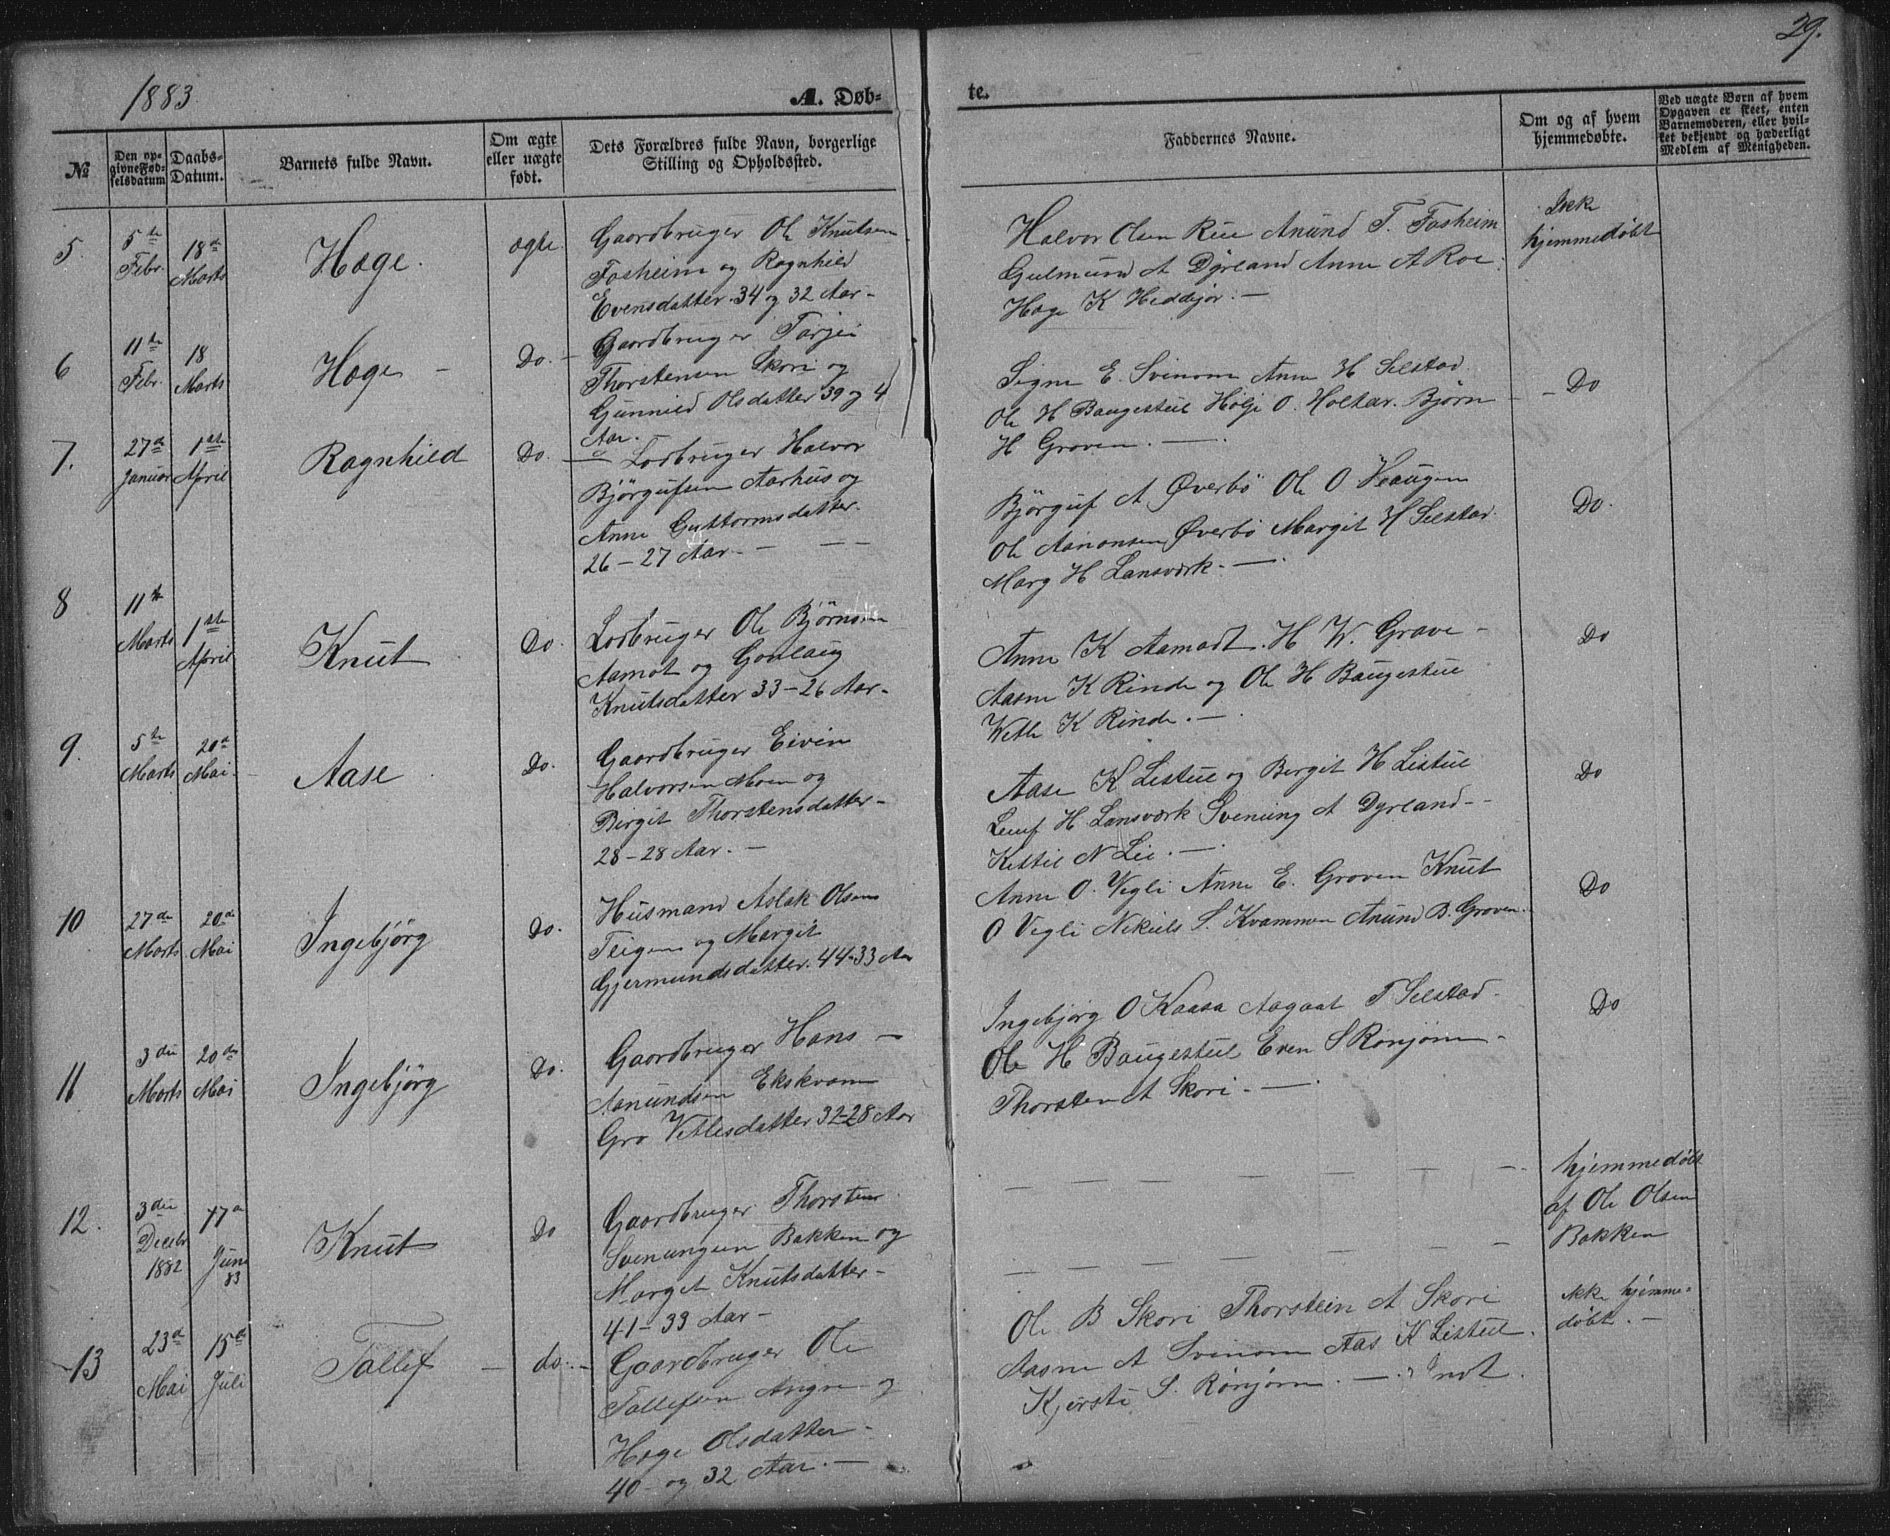 29.
1883
A. Døb-
te.
№
Den op-
givne Fød-
selsdatum
Daabs-
Datum.
Barnets fulde Navn.
Om ægte
eller uægte
født.
Dets Forældres fulde Navn, borgerlige
Stilling og Opholdssted.
Faddernes Navne.
Om og af hvem
hjemmedøbte.
Ved uægte Børn af hvem
Opgaven er skeet, enten
Barnemoderen, eller hvil-
ket bekjendt og hæderligt
Medlem af Menigheden.
5.
5te
Febr.
18de
Marts
Hæge.
ægte.
Gaardbruger Ole Knutsen
Fosheim og Ragnhild
Evensdatter 34 og 32 Aar-
Halvor Olsen Rue Anund T. Fosheim
Gulmund A Dyrland Anne A Roe
Hæge K Heddejor. -
Ikke
hjemmedøbt
6
11te
Febr.
18
Marts
Hæge -
Do. -
Gaardbruger Tarjei
Thorstensen Skori og
Gunnild Olsdatter 39 og 4
Aar.
Signe E. Svinom Anne H Selstad.
Ole H Baugestul Hølje O. Holtar. Bjørn -
H Groven. -
- Do
7.
27de
Januar
1ste
April
Ragnhild
Do.
- Lodbruger Halvor
Bjørgufsen Aarhus og
Anne Guttormsdatter.
26 - 27 Aar. - - -
Bjørguf A Øverbö Ole O Haugen
Ole Aanonsen Øverbö Margit H Selstad.
Marg H Lansværk. - .
Do.
8
11te
Marts
1ste
April
Knut
Do.
Lodbruger Ole Bjørnsen
Aamot og Gonlaug
Knutsdatter 33 - 26 Aar -
Anne K Aamodt. H W. Grave -
Aasne K Rinde og Ole H Baugestul
Wetle K Rinde. - .
Do
9.
5te
Marts
20de
Mai
Aase
Do.
Gaardbruger Eivin
Halvorsen Moen og
Birgit Thorstensdatter -
28 - 28 Aar. -
Aase K Listul og Birgit H Listul
Leuf H Lansværk Svenung A Dyrland - -
Kettil N Lie. - .
Do
10
27de
Marts
20de
Mai
Ingebjörg
Do.
Husmand Aslak Olsen
Teigen og Margit
Gjermundsdatter. 44-33 Aar
Anne O. Vegli Anne E. Groven Knut
O Vegli Nekuls S. Kvammen Anund B. Groven.
Do
11
3die
Marts
20de
Mai
Ingebjörg
Do.
Gaardbruger Hans -
Aanundsen Ekskvam
Gro Vetlesdatter 32-28 Aar
Ingebjörg O Kaasa Aagaat T Selstad -
Ole H Baugestul Even S Rønjom -
Thorsten A Skori - - .
Do
12.
3die
Decbr
1882
17de
Juni
83
Knut
Do
Gaardbruger Thorsten
Svenungsen Bakken og
Marget Knutsdatter -
41 - 33 Aar -
- - - - - - -
- - - - - -
hjemmedøbt
af Ole Olsen
Bakken
13
23de
Mai
15de
Juli
Tallef -
do. -
Gaardbruger Ole
Tallefsen Angre og
Hæge Olsdatter -
40 - og 32 Aar. -
Ole B Skori Thorstein A Skori
Aasne A Svinom Aas K Listul.
Kjersti S. Rønjom. -
ikke hjemme-
døbt. -